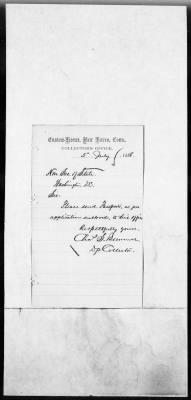 Custom-House, New Haven, Conn.
COLLECTOR'S OFFICE,
5th July 188
Hon Sec of State
Washington D.C.
Sir
Please send Passport, as per
application enclosed, to this office
Respectfully yours
Chas
Dp Collector